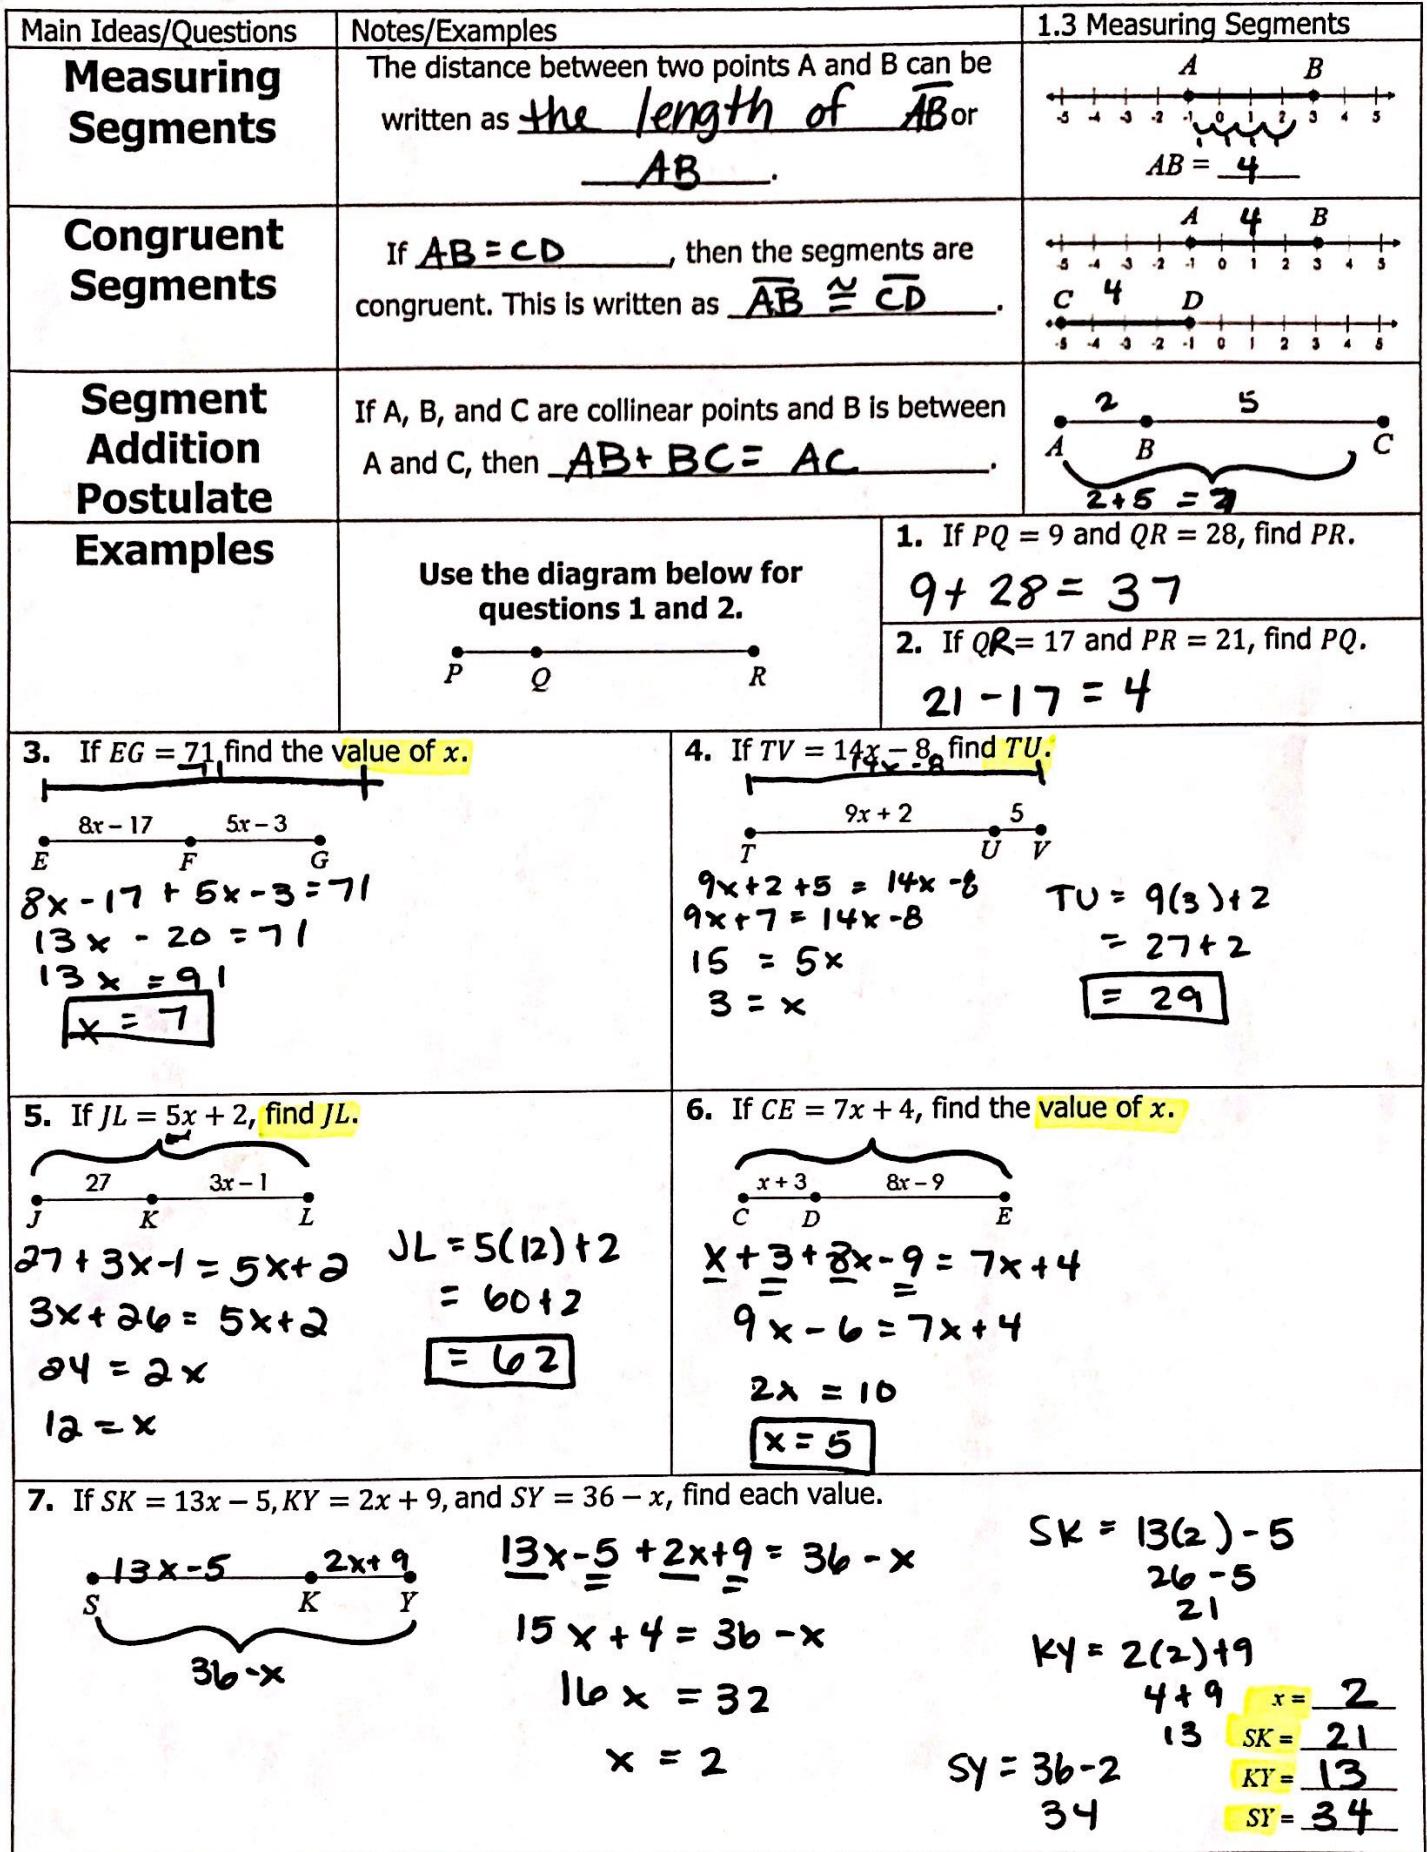 Main Ideas/Questions
Notes/Examples
1.3 Measuring Segments
Measuring
Segments
The distance between two points A and B can be
written as the length of A̅B̅ or
AB.
A B
-5 -4 -3 -2 -1 0 1 2 3 4 5
AB = 4
Congruent
Segments
If AB = CD, then the segments are
congruent. This is written as A̅B̅ ≅ C̅D̅.
A 4 B
-5 -4 -3 -2 -1 0 1 2 3 4 5
C 4 D
-5 -4 -3 -2 -1 0 1 2 3 4 5
Segment
Addition
Postulate
If A, B, and C are collinear points and B is between
A and C, then AB + BC = AC.
2 5
A B C
2+5 = 7
Examples
Use the diagram below for
questions 1 and 2.
P Q R
1. If PQ = 9 and QR = 28, find PR.
9 + 28 = 37
2. If QR = 17 and PR = 21, find PQ.
21 - 17 = 4
3. If EG = 71, find the value of x.
71
8x – 17 5x – 3
E F G
8x - 17 + 5x - 3 = 71
13x - 20 = 71
13x = 91
x = 7
4. If TV = 14x – 8, find TU.
14x - 8
9x + 2 5
T U V
9x+2 +5 = 14x -8
9x+7 = 14x -8
15 = 5x
3 = x
TU = 9(3)+2
= 27+2
= 29
5. If JL = 5x + 2, find JL.
27 3x – 1
J K L
27 + 3x-1 = 5x+2
3x+26 = 5x+2
24 = 2x
12 = x
JL = 5(12)+2
= 60+2
= 62
6. If CE = 7x + 4, find the value of x.
x + 3 8x – 9
C D E
x + 3 + 8x - 9 = 7x + 4
9x - 6 = 7x + 4
2x = 10
x = 5
7. If SK = 13x – 5, KY = 2x + 9, and SY = 36 – x, find each value.
13x-5 2x+9
S K Y
36-x
13x-5 +2x+9 = 36-x
15x+4 = 36-x
16x = 32
x = 2
SK = 13(2)-5
26-5
21
KY = 2(2)+9
4+9
13
SY = 36-2
34
x = 2
SK = 21
KY = 13
SY = 34